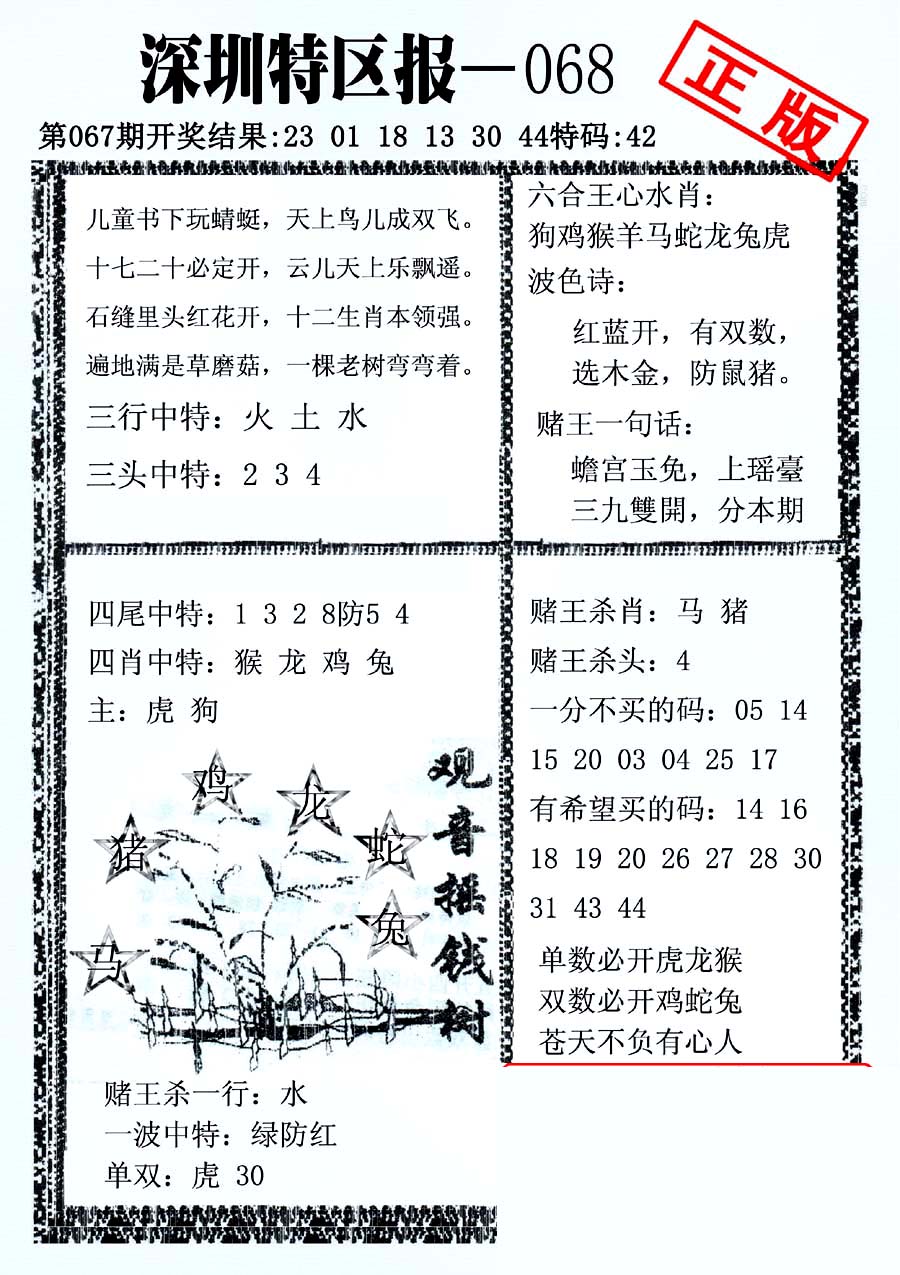 深圳特区报—068
正版
第067期开奖结果:23 01 18 13 30 44特码:42
儿童书下玩蜻蜓，天上鸟儿成双飞。
十七二十必定开，云儿天上乐飘遥。
石缝里头红花开，十二生肖本领强。
遍地满是草磨菇，一棵老树弯弯着。
三行中特：火 土 水
三头中特：2 3 4
六合王心水肖：
狗鸡猴羊马蛇龙兔虎
波色诗：
红蓝开，有双数，
选木金，防鼠猪。
赌王一句话：
蟾宫玉免，上瑶臺
三九雙開，分本期
四尾中特：1 3 2 8防5 4
四肖中特：猴 龙 鸡 兔
主：虎 狗
鸡
龙
猪
蛇
兔
马
观音摇钱树
赌王杀一行：水
一波中特：绿防红
单双：虎 30
赌王杀肖：马 猪
赌王杀头：4
一分不买的码：05 14
15 20 03 04 25 17
有希望买的码：14 16
18 19 20 26 27 28 30
31 43 44
单数必开虎龙猴
双数必开鸡蛇兔
苍天不负有心人